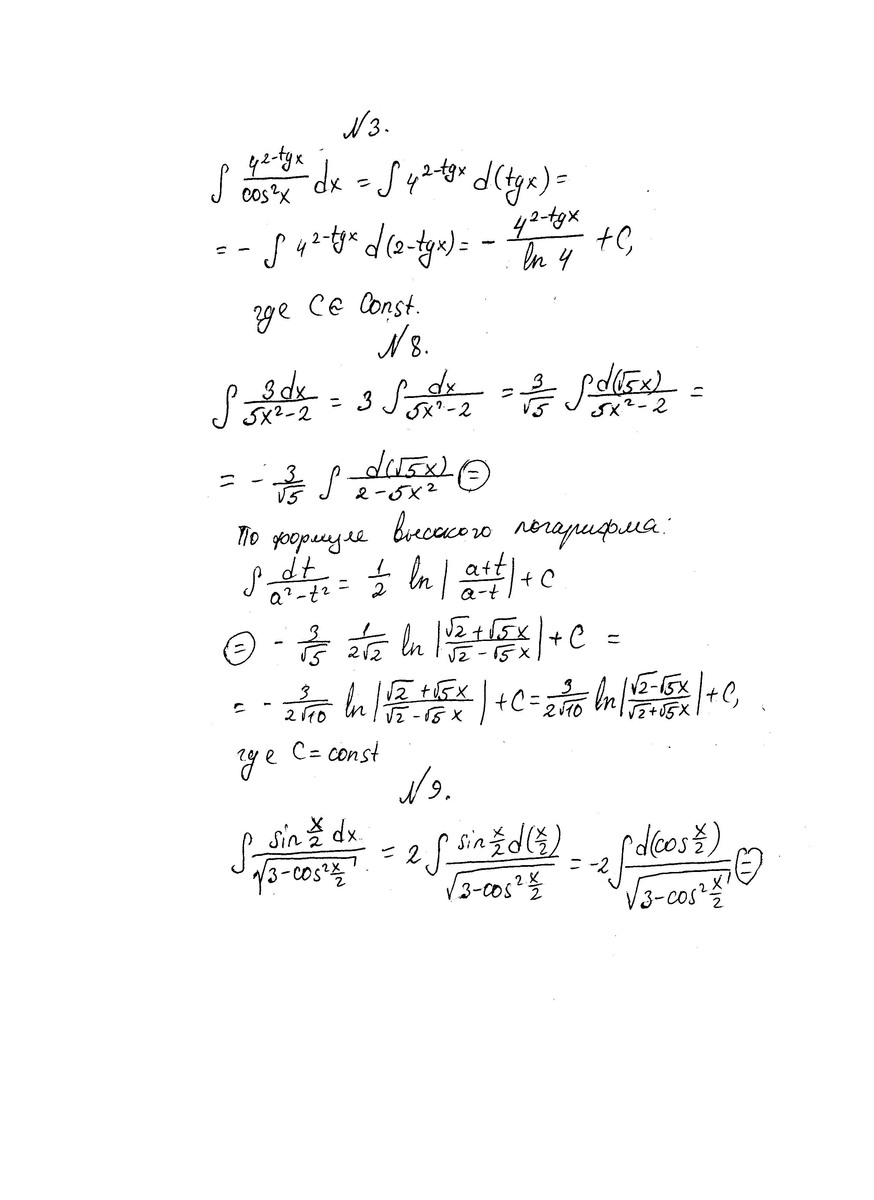 N3.
∫ 4^(2-tgx)/cos²x dx = ∫ 4^(2-tgx) d(tgx) =
= - ∫ 4^(2-tgx) d(2-tgx) = - 4^(2-tgx)/ln 4 + C,
где C∈ Const.
N8.
∫ 3dx/(5x²-2) = 3 ∫ dx/(5x²-2) = 3/√5 ∫ d(√5x)/(5x²-2) =
= - 3/√5 ∫ d(√5x)/(2-5x²) ⊜
По формуле высокого логарифма:
∫ dt/(a²-t²) = 1/2 ln |(a+t)/(a-t)| + C
⊜ - 3/√5 1/(2√2) ln |(√2+√5x)/(√2-√5x)| + C =
= - 3/(2√10) ln |(√2+√5x)/(√2-√5x)| + C = 3/(2√10) ln |(√2-√5x)/(√2+√5x)| + C,
где C = const
N9.
∫ sin(x/2) dx/√(3-cos²(x/2)) = 2 ∫ sin(x/2) d(x/2)/√(3-cos²(x/2)) = -2 ∫ d(cos(x/2))/√(3-cos²(x/2)) ⊜